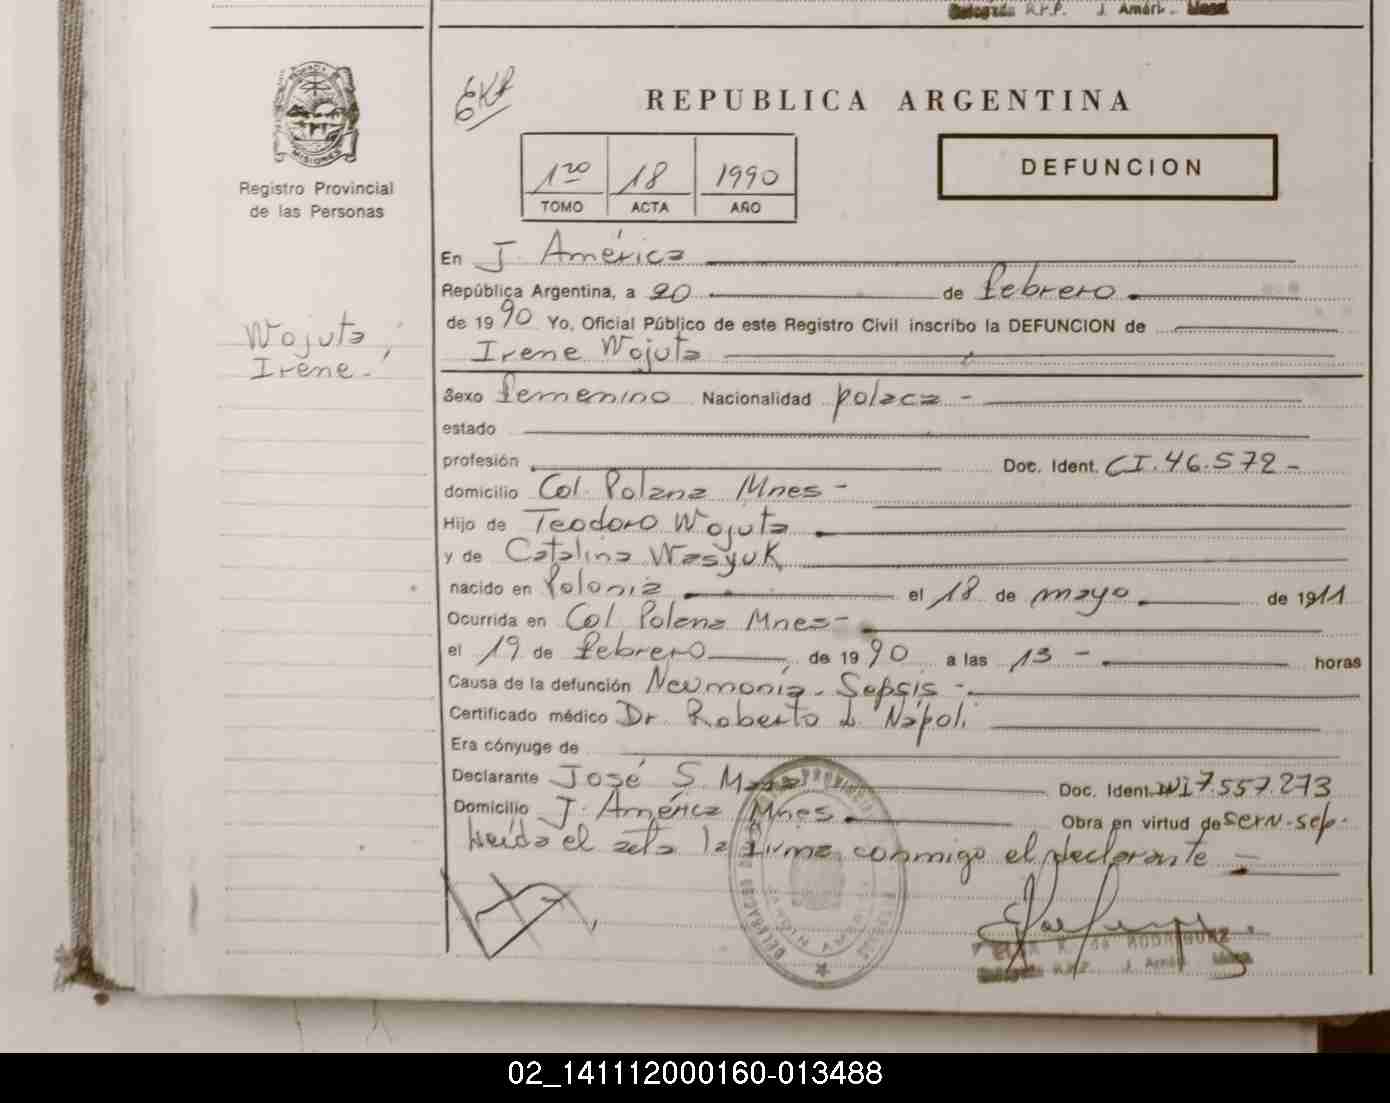 Delegada R.P.P. J. Amér. Mnes
EKA
REPUBLICA ARGENTINA
MISIONES
Registro Provincial
de las Personas
1ro 18 1990
TOMO ACTA AÑO
DEFUNCION
En J. América
República Argentina, a 20 de febrero
de 1990 Yo, Oficial Público de este Registro Civil inscribo la DEFUNCION de
Irene Wojuta
Wojuta,
Irene.-
Sexo femenino Nacionalidad polaca -
estado
profesión Doc. Ident. CI.46.572-
domicilio Col. Polana Mnes-
Hijo de Teodoro Wojuta
y de Catalina Wasyuk
nacido en Polonia el 18 de mayo de 1911
Ocurrida en Col Polana Mnes-
el 19 de febrero de 1990 a las 13 - horas
Causa de la defunción Neumonía - Sepsis -
Certificado médico Dr. Roberto L. Nápoli
Era cónyuge de
Declarante José S. Doc. Ident. 7.557.273
Domicilio J. América Mnes. Obra en virtud de
Leída el acta la firma conmigo el declarante -
de RODRIGUEZ
Delegada R.P.P. J. Amér. Mnes
02_141112000160-013488